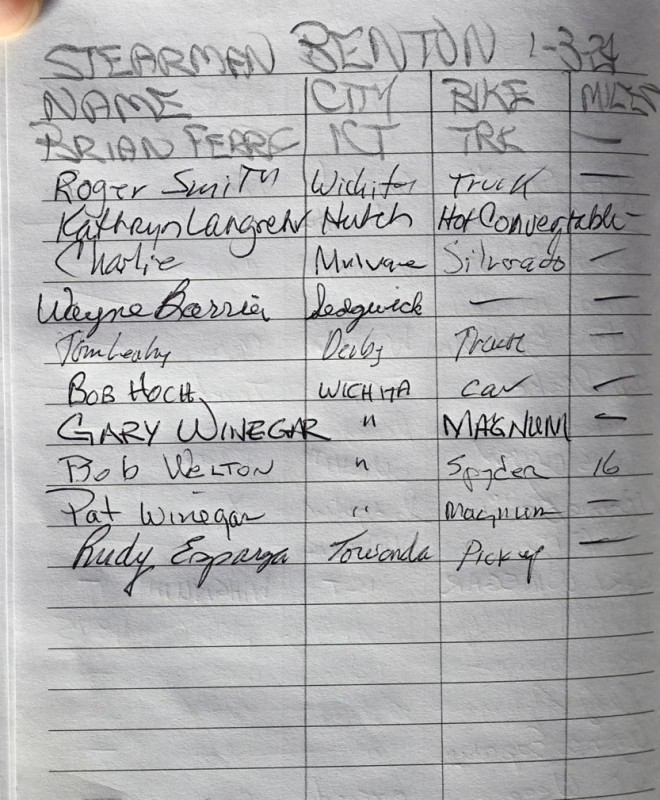 STEARMAN BENTON 1-3-24
NAME CITY BIKE MILES
BRIAN FERRC ICT TRK —
Roger Smith Wichita Truck —
Kathryn Langrehr Hutch Hot Convertable —
Charlie Mulvane Silverado —
Wayne Barrier Sedgwick — —
Tom Leahy Derby Truck —
BOB HOCH WICHITA car —
GARY WINEGAR " MAGNUM —
Bob WELTON " Spyder 16
Pat Winegar " Magnum —
Rudy Esparza Towanda Pickup —